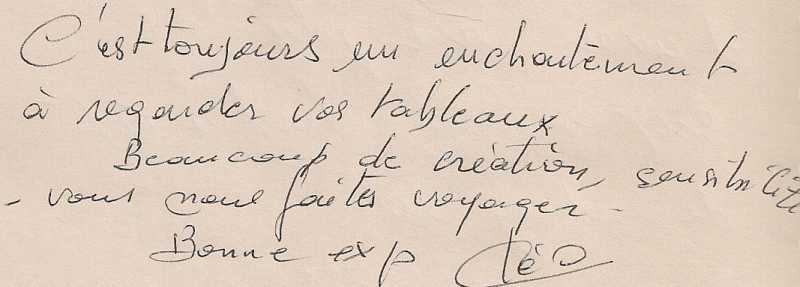 C'est toujours un enchantement
à regarder vos tableaux
Beaucoup de création, sensibilité
- vous nous faites voyager -
Bonne exp